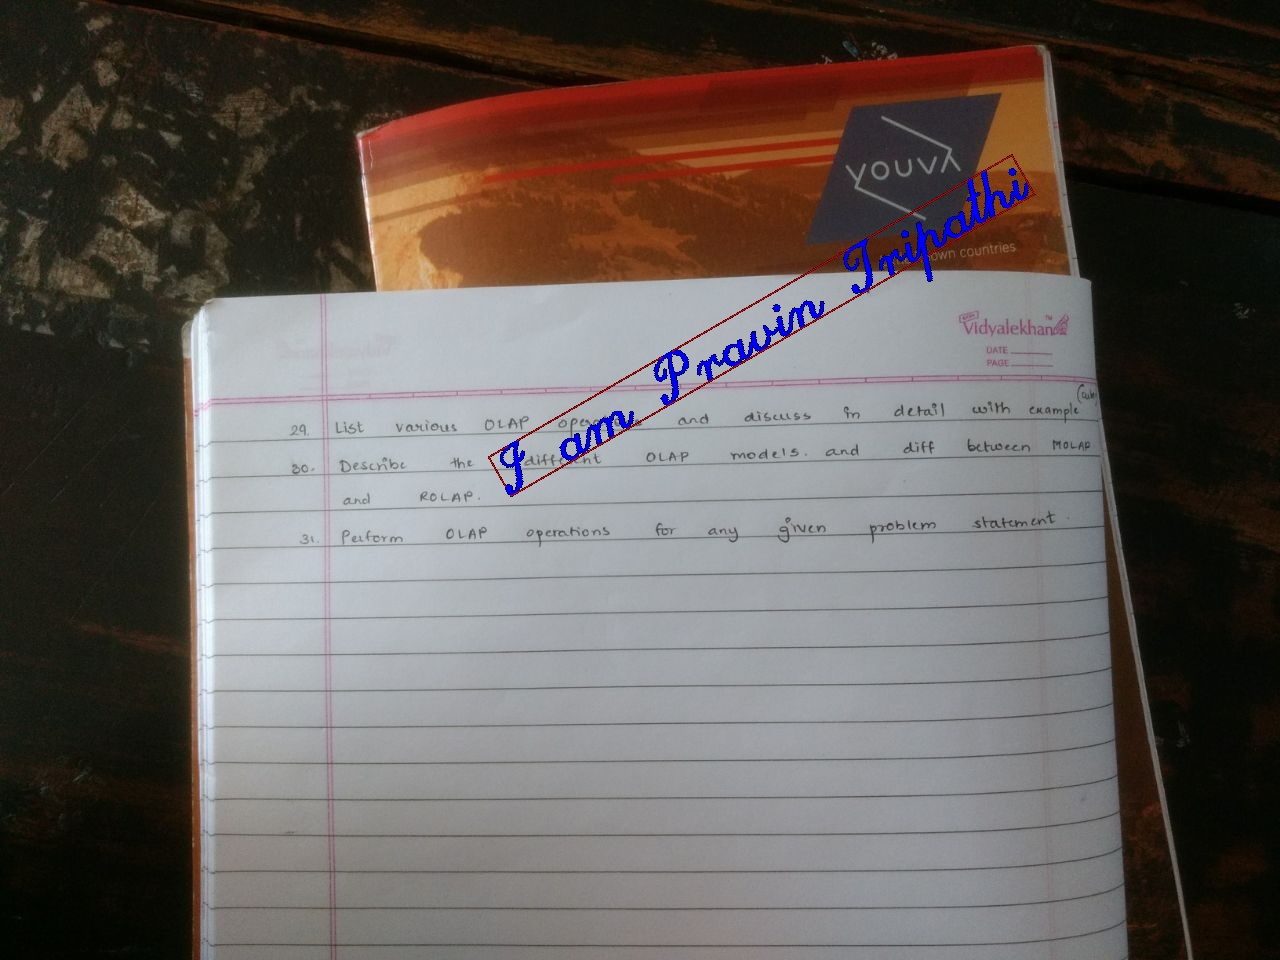 YOUVA
own countries
I am Pravin Tripathi
Vidyalekhan
DATE
PAGE
29. List various OLAP and discuss in detail with example
30. Describe the different OLAP models. and diff between MOLAP
and ROLAP.
31. Perform OLAP operations for any given problem statement.